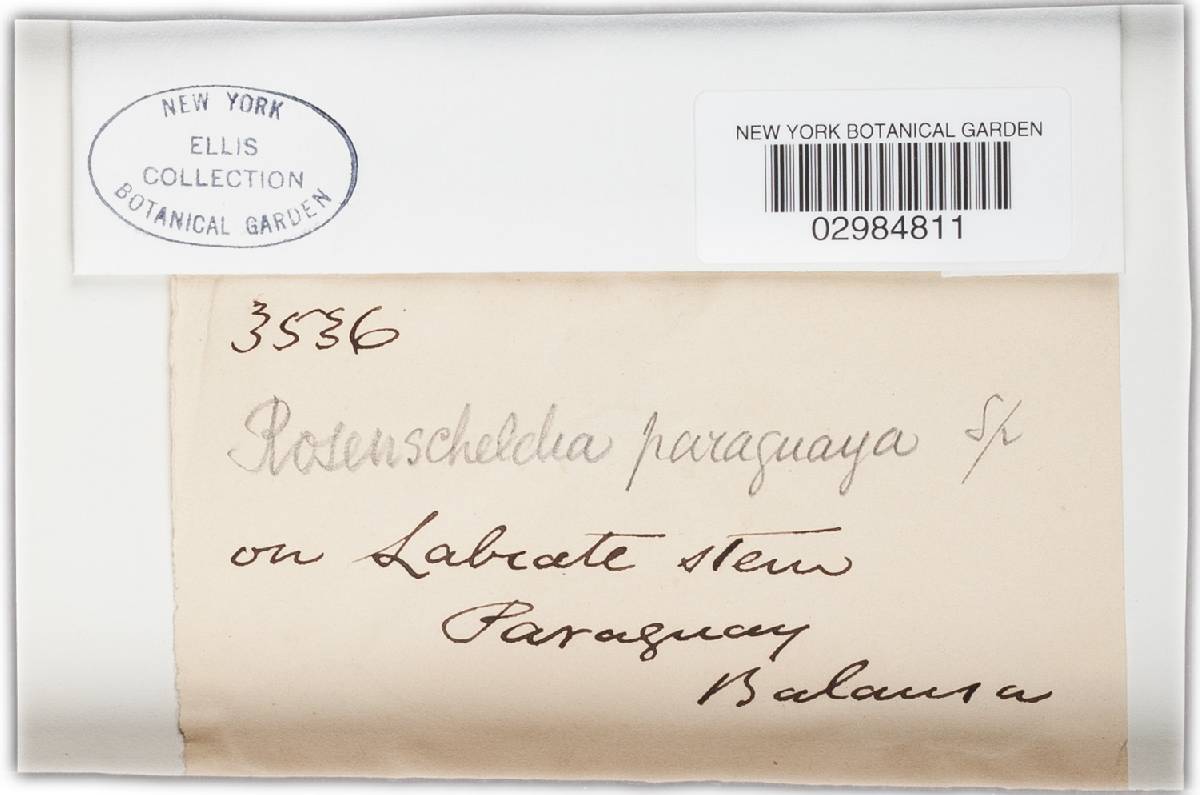 NEW YORK
ELLIS
COLLECTION
BOTANICAL GARDEN
NEW YORK BOTANICAL GARDEN
02984811
3536
Rosenscheldia paraguaya Sp
on Labiate stem
Paraguay
Balansa